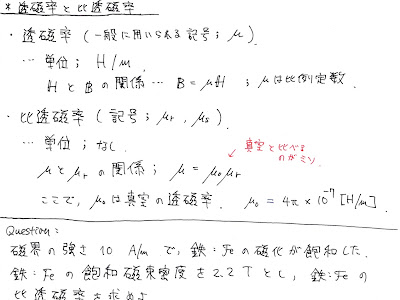 * 透磁率と比透磁率
・透磁率 (一般に用いられる記号; μ).
… 単位; H/m.
HとBの関係… B = μH ; μは比例定数.
・比透磁率 (記号; μr , μs).
… 単位; なし.
真空と比べる
のがミソ
μとμrの関係; μ = μ0μr
ここで, μ0は真空の透磁率. μ0 = 4π × 10⁻⁷ [H/m].
Question:
磁界の強さ 10 A/m で, 鉄:Feの磁化が飽和した.
鉄:Feの飽和磁束密度を2.2 Tとし, 鉄:Feの
比透磁率を求めよ